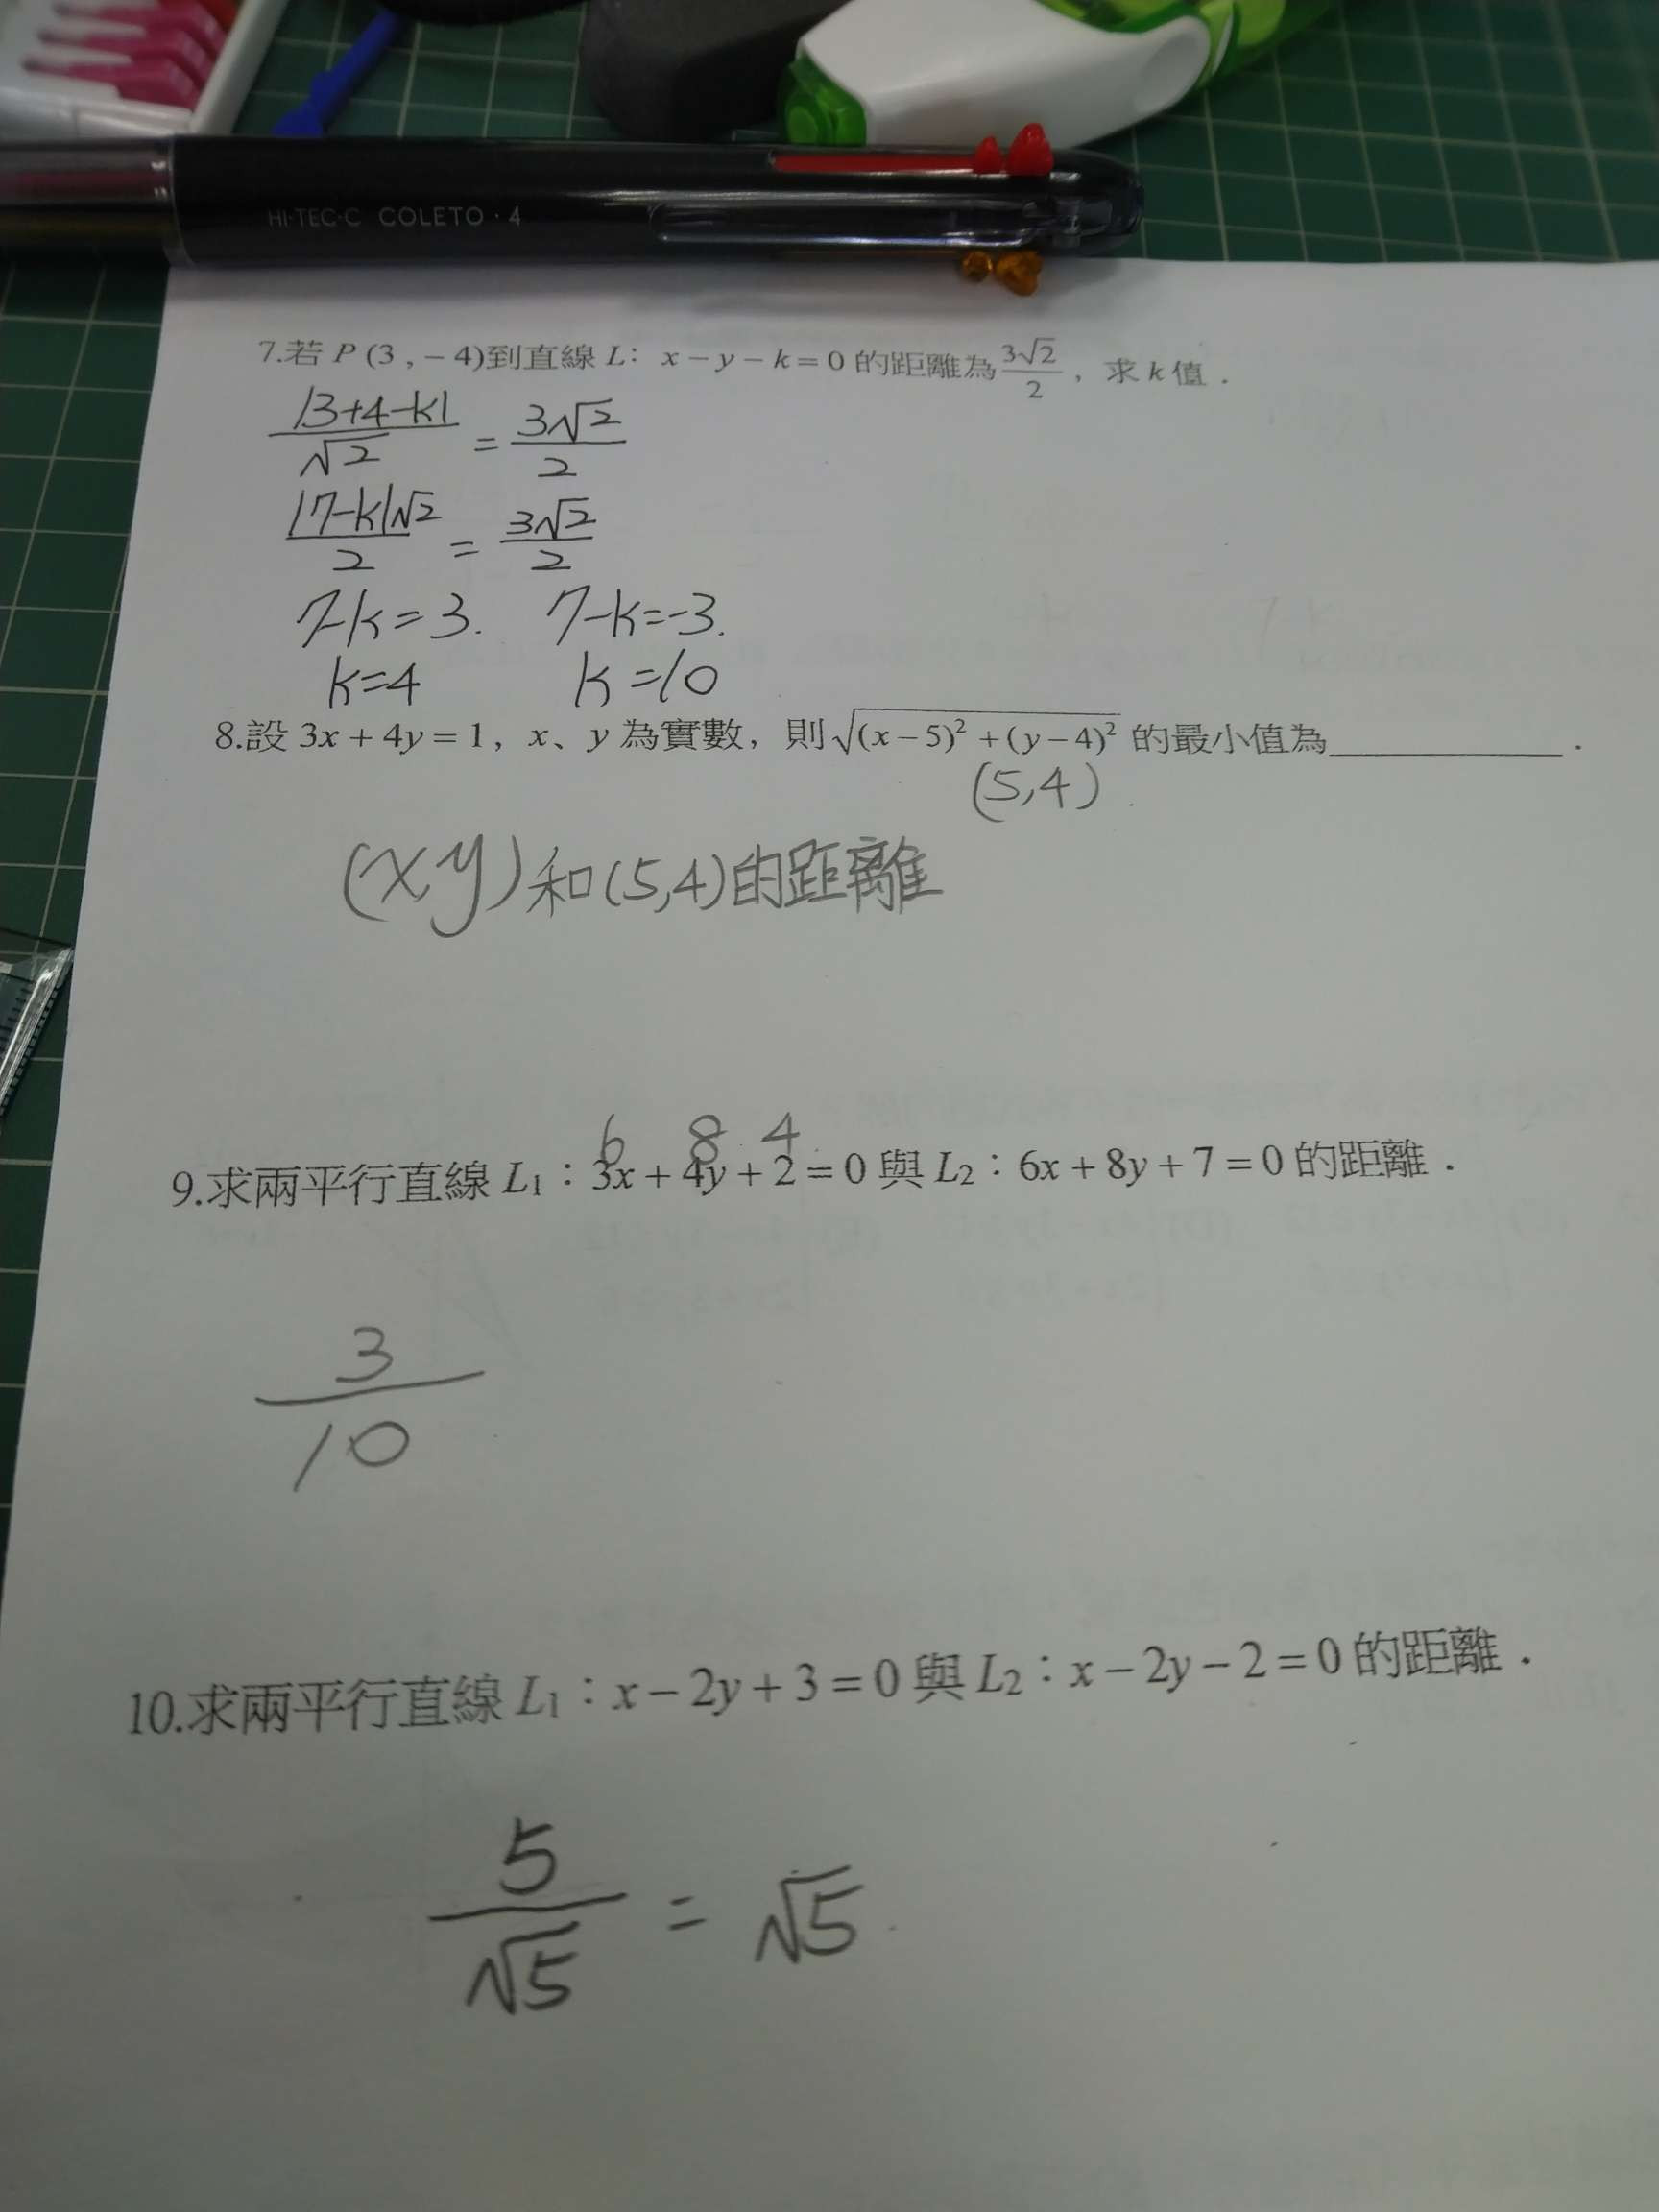 HI-TEC-C COLETO · 4
7.若 P (3 , – 4)到直線 L：x – y – k = 0 的距離為 3√2/2 ，求 k 值．
|3+4-k|/√2 = 3√2/2
|7-k|√2/2 = 3√2/2
7-k=3. 7-k=-3.
k=4 k=10
8.設 3x + 4y = 1，x、y 為實數，則 √((x – 5)² + (y – 4)²) 的最小值為____________．
(5,4)
(x,y)和(5,4)的距離
6 8 4
9.求兩平行直線 L₁：3x + 4y + 2 = 0 與 L₂：6x + 8y + 7 = 0 的距離．
3/10
10.求兩平行直線 L₁：x – 2y + 3 = 0 與 L₂：x – 2y – 2 = 0 的距離．
5/√5 = √5